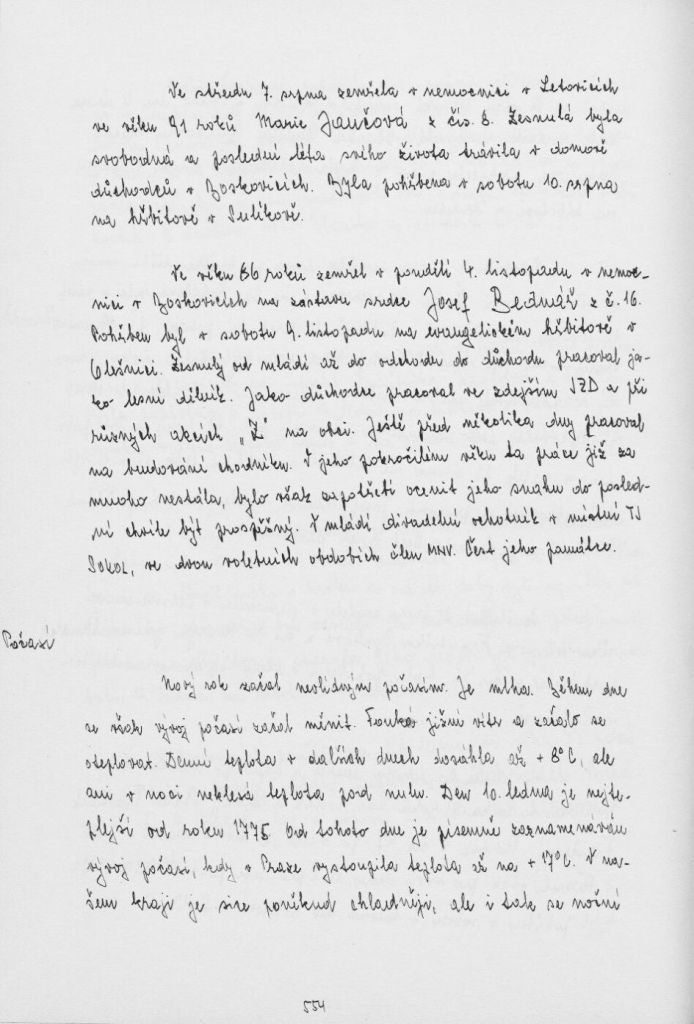 Ve středu 7. srpna zemřela v nemocnici v Letovicích
ve věku 91 roků Marie Jančová z čís. 8. Zesnulá byla
svobodná a poslední léta svého života trávila v domově
důchodců v Boskovicích. Byla pohřbena v sobotu 10. srpna
na hřbitově v Sulíkově.
Ve věku 86 roků zemřel v pondělí 4. listopadu v nemoc-
nici v Boskovicích na zástavu srdce Josef Bednář z č. 16.
Pohřben byl v sobotu 9. listopadu na evangelickém hřbitově v
Olešnici. Zesnulý od mládí až do odchodu do důchodu pracoval ja-
ko lesní dělník. Jako důchodce pracoval ve zdejším JZD a při
různých akcích „Z" na obci. Ještě před několika dny pracoval
na budování chodníku. V jeho pokročilém věku ta práce již za
mnoho nestála, bylo však zapotřebí ocenit jeho snahu do posled-
ní chvíle být prospěšný. V mládí divadelní ochotník v místní TJ
SOKOL, ve dvou voletních obdobích člen MNV. Čest jeho památce.
Počasí
Nový rok začal neolidným počasím. Je mlha. Během dne
se však vývoj počasí začal měnit. Fouká jižní vítr a začalo se
oteplovat. Denní teplota v dalších dnech dosáhla až + 8°C, ale
ani v noci neklesá teplota pod nulu. Den 10. ledna je nejte-
plejší od roku 1775 Od tohoto dne je písemně zaznamenáván
vývoj počasí, kdy v Praze vystoupila teplota až na + 17°C. V na-
šem kraji je sice poněkud chladněji, ale i tak se noční
554